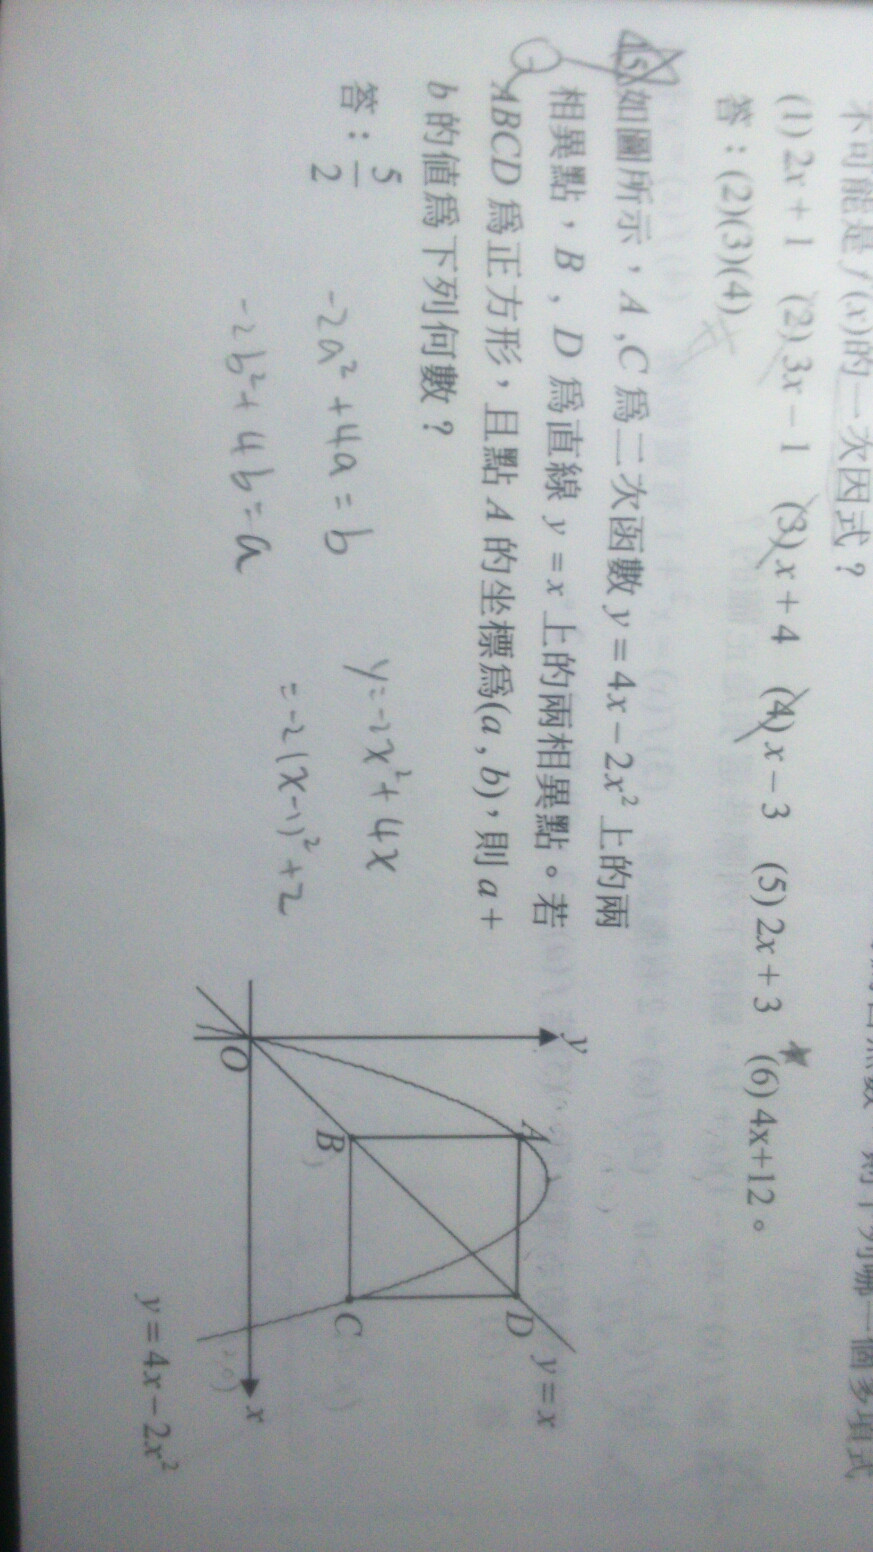 不可能是 f(x)的一次因式？
(1) 2x + 1 (2) 3x − 1 (3) x + 4 (4) x − 3 (5) 2x + 3 ★ (6) 4x+12。
答：(2)(3)(4)
45. 如圖所示，A ,C 為二次函數 y = 4x − 2x² 上的兩
相異點，B , D 為直線 y = x 上的兩相異點。若
ABCD 為正方形，且點 A 的坐標為(a , b)，則 a +
b 的值為下列何數？
答：5/2
-2a² + 4a = b
-2b² + 4b = a
y = -2x² + 4x
= -2(x-1)² + 2
y
A
D
y = x
B
C
O
x
y = 4x − 2x²